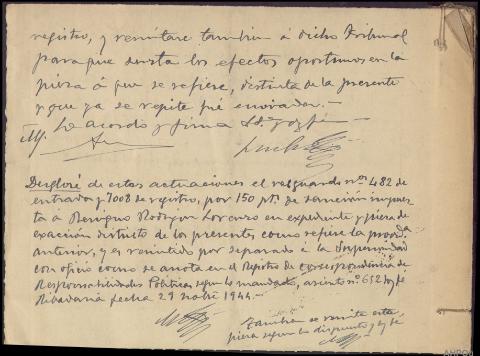 registro, y remítase tambien á dicho Tribunal
para que surta los efectos oportunos en la
pieza á que se refiere, distinta de la presente
y que ya se repite fué enviada.-
Lo acordo y firma S.Sª. doy fé
Desglosé de estas actuaciones el resguardo nºs 482 de
entrada y 7008 de registro, por 150 pts. de sanción impues
ta á Benigno Rodrigon Lorenzo en expediente y pieza de
exacción distinto de los presente, como refiere la provdª
anterior, y es remitido por separado á la Superioridad
con oficio como se anota en el Registro de correspondencia de
Responsabilidades Politicas segun lo mandado, asiento nº 652 doy fe
Ribadavia fecha 29 1944.-
Tambien se remite esta
pieza segun lo dispuesto y doy fe